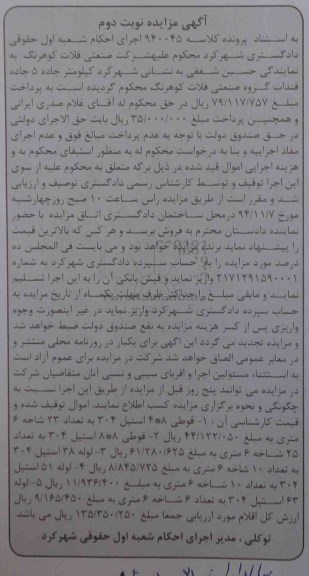 آگهی مزایده نوبت دوم
به استناد پرونده کلاسه ۹۴۰۰۴۵ اجرای احکام شعبه اول حقوقی
دادگستری شهرکرد محکوم علیهشرکت صنعتی فلات کوهرنگ به
نمایندگی حسین شفقی به نشانی شهرکرد کیلومتر جاده ۵ جاده
قنداب گروه صنعتی فلات کوهرنگ محکوم گردیده است به پرداخت
مبلغ ۷۹/۱۱۷/۷۵۷ ریال در حق محکوم له آقای غلام صدری ایرانی
و همچنین پرداخت مبلغ ۳۵/۰۰۰/۰۰۰ ریال بابت حق الاجرای دولتی
در حق صندوق دولت با توجه به عدم پرداخت مبالغ فوق و عدم اجرای
مفاد اجراییه و بنا به درخواست محکوم له به منظور استیفای محکوم به و
هزینه اجرایی اموال قید شده در ذیل برگه متعلق به محکوم علیه از سوی
این اجرا توقیف و توسط کارشناس رسمی دادگستری توصیف و ارزیابی
شد و مقرر است از طریق مزایده راس ساعت ۱۰ صبح روزچهارشنبه
مورخ ۹۴/۱۱/۷ درمحل ساختمان دادگستری اتاق مزایده با حضور
نماینده دادستان محترم به فروش برسد و هر کس که بالاترین قیمت
را پیشنهاد نماید برنده خواهد بود و می بایست فی المجلس ده
درصد مورد مزایده را به حساب سپرده دادگستری شهرکرد به شماره
۲۱۷۱۲۹۱۵۹۰۰۰۱ واریز نماید و فیش بانکی آن را به این اجرا تسلیم
نماید و مابقی مبلغ را حداکثر ظرف مهلت یکماه از تاریخ مزایده به
حساب سپرده دادگستری شهرکرد واریز نماید در غیر اینصورت وجوه
واریزی پس از کسر هزینه مزایده به نفع صندوق دولت ضبط خواهد شد
و مزایده تجدید می گردد این آگهی برای یکبار در روزنامه محلی منتشر و
در معابر عمومی الصاق خواهد شد شرکت در مزایده برای عموم آزاد است
به استثناء مسئولین اجرا و اقربای سببی و نسبی آنان متقاضیان شرکت
در مزایده می توانند پنج روز قبل از مزایده از طریق این اجرا نسبت به
چگونگی و نحوه برگزاری مزایده کسب اطلاع نمایند. اموال توقیف شده و
قیمت کارشناسی آن : ۱- قوطی ۸*۴ استیل ۳۰۴ به تعداد ۳۳ شاخه ۶
متری به مبلغ ۴۴/۱۲۲/۰۵۰ ریال ۲- قوطی ۸*۸ استیل ۳۰۴ به تعداد
۲۵ شاخه ۶ متری به مبلغ ۶۱/۲۸۰/۶۲۵ ریال ۳- لوله ۳۸ استیل ۳۰۴
به تعداد ۱۰ شاخه ۶ متری به مبلغ ۸/۸۴۵/۷۲۵ ریال ۴- لوله ۵۱ استیل
۳۰۴ به تعداد ۱۰ شاخه ۶ متری به مبلغ ۱۱/۹۳۶/۴۰۰ ریال ۵-لوله
۶۳ استیل ۳۰۴ به تعداد ۶ شاخه ۶ متری به مبلغ ۹/۱۶۵/۴۵۰ ریال
ارزش کل اقلام مورد ارزیابی جمعا مبلغ ۱۳۵/۳۵۰/۲۵۰ ریال می باشد.
توکلی ، مدیر اجرای احکام شعبه اول حقوقی شهرکرد